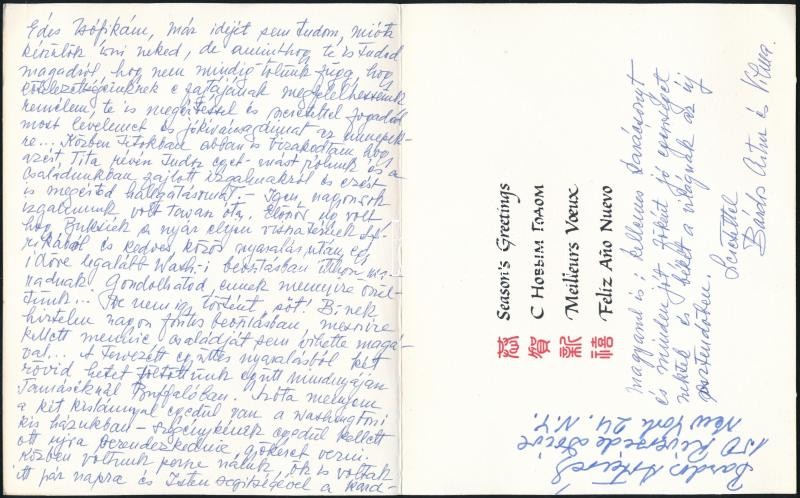 Édes Zsófikám, már idejét sem tudom, mióta
készülök írni neked, de aminthogy te is tudod
magadról, hogy nem mindig tőlünk függ, hogy
kötelezettségeinknek a faj megfelelhessünk
remélem, te is megértéssel és szeretettel fogadod
most levelemet és jókívánságaimat az ünnepek-
re... Közben titokban abban is bizakodtam, hogy
azért, Tita révén tudsz egyet-mást rólunk és a
családunkban zajlott izgalmakról és ezért
is megérted hallgatásomat. – Igen nagy
izgalmunk volt tavasz óta. Először úgy volt
hogy a nyár elején visszatérnek Áf-
rikából és kedves közös nyaralás után, egy
időre legalább Wash.-i beosztásban itthon ma-
radnak. Gondolhatod, ennek mennyire örül-
tünk... De nem így történt, sőt! B.-nek
hirtelen nagyon fontos beosztásban, messzire
kellett mennie, családját sem vihette magá-
val... A tervezett együttes nyaralásból két
rövid hetet töltöttünk együtt mindnyájan
Tamáséknál Buffaloban. Azóta menyem
a két kislánnyal egyedül van a washingtoni
kis házunkban – szegénykének egyedül kellett
ott újra berendezkednie, gyökeret verni.
Közben voltunk persze náluk, ők is voltak
itt pár napra és Isten segítségével a kará-
Season's Greetings
С Новым Годом
Meilleurs Voeux
Feliz Año Nuevo
恭賀新禧
magyarul is: kellemes karácsonyt
és minden jót, főként jó egészséget
nektek és békét a világnak az új
esztendőben.
Szeretettel
Bárdos Artur és Vilma.
Bardos Artur
150 Riverside Drive
New York 24. N.Y.